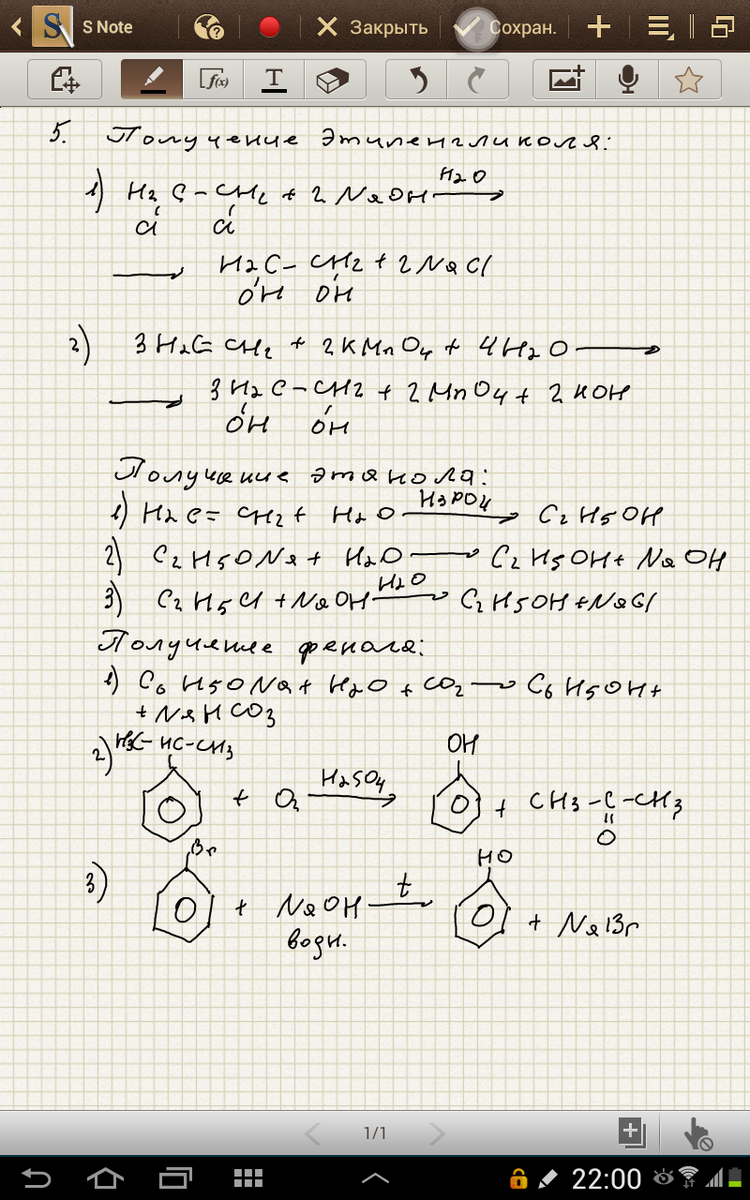 S Note
Закрыть
Сохран.
f(x)
T
5. Получение этиленгликоля:
1) H2C-CH2 + 2NaOH H2O →
Cl Cl
→ H2C-CH2 + 2NaCl
OH OH
2) 3H2C=CH2 + 2KMnO4 + 4H2O →
→ 3H2C-CH2 + 2MnO4 + 2KOH
OH OH
Получение этанола:
1) H2C=CH2 + H2O H3PO4 → C2H5OH
2) C2H5ONa + H2O → C2H5OH + NaOH
3) C2H5Cl + NaOH H2O → C2H5OH + NaCl
Получение фенола:
1) C6H5ONa + H2O + CO2 → C6H5OH +
+ NaHCO3
2) H3C-HC-CH3 OH
+ O2 H2SO4 → + CH3-C-CH3
O
3) Br HO
+ NaOH t → + NaBr
водн.
1/1
22:00